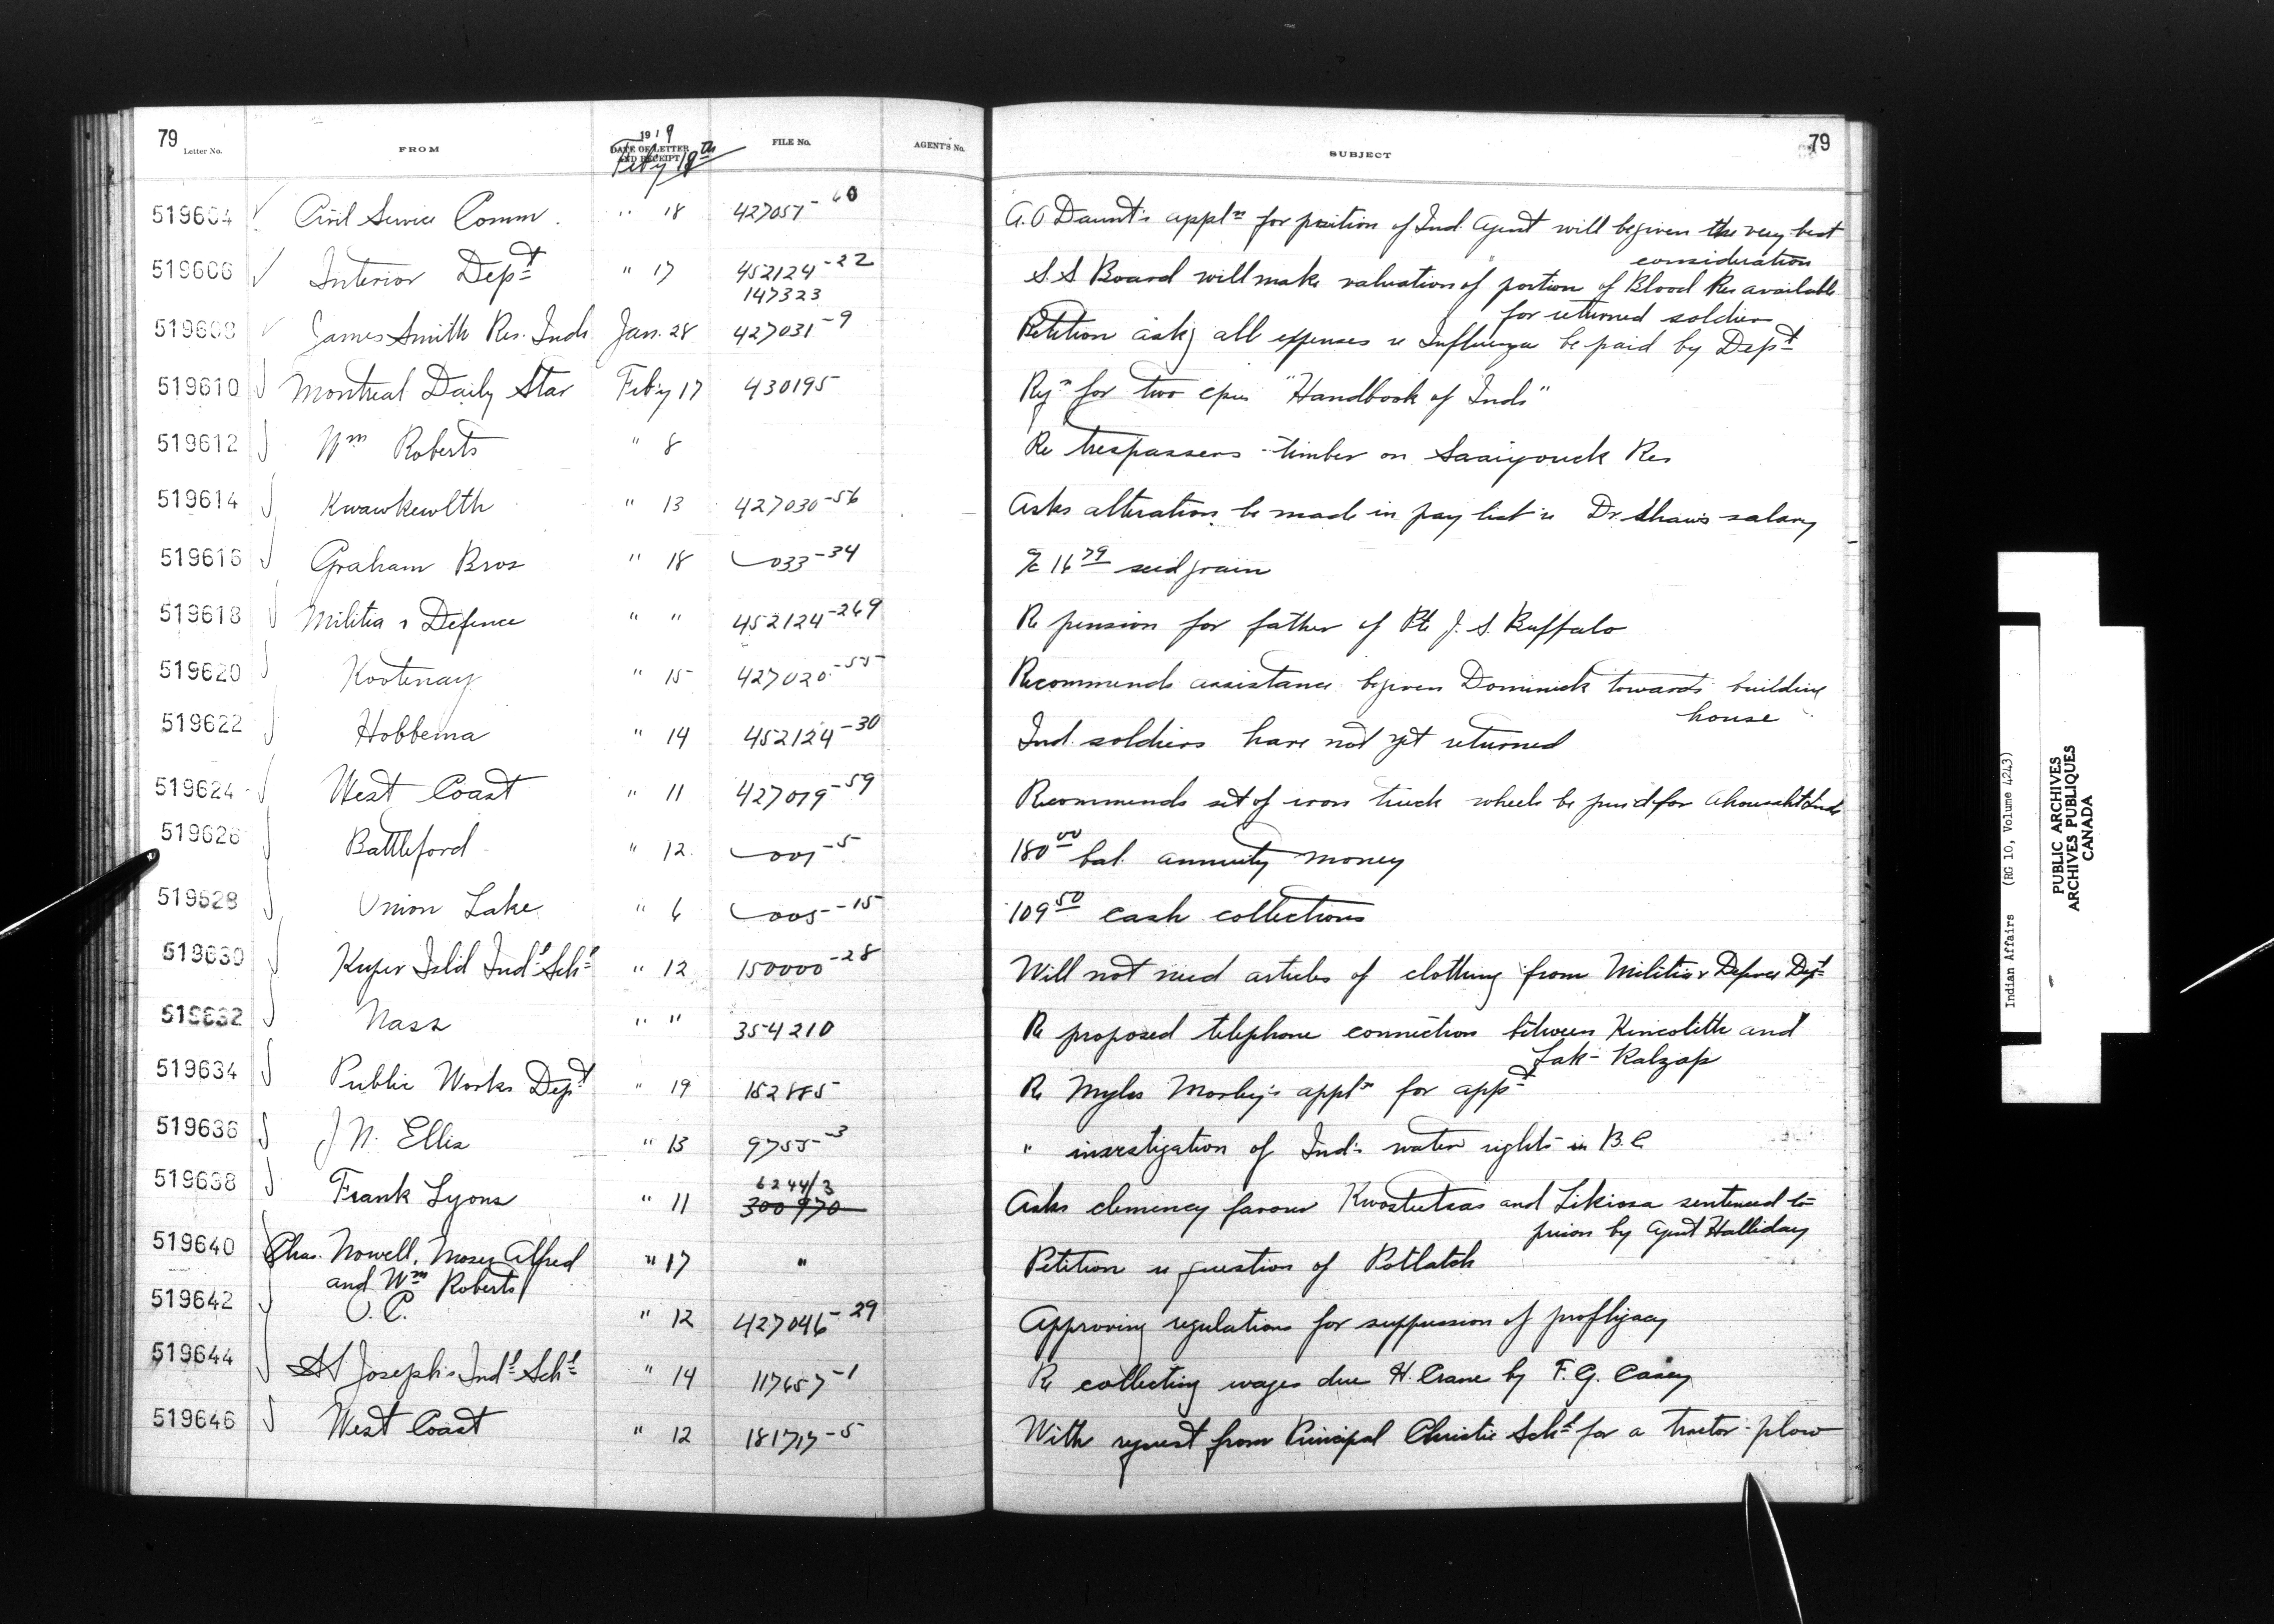 79 Letter No. FROM 1919 DATE OF LETTER AND RECEIPT Feby 18th FILE No. AGENT'S No. SUBJECT 79
519604 Civil Service Comm. " 18 427057-60 A.O. Daunt's appln for position of Ind. Agent will be given the very best
consideration
519606 Interior Dept " 17 452124-22 S.S Board will make valuation of portion of Blood Res available
147323
for returned soldiers
519608 James Smith Res. Inds Jan. 28 427031-9 Petition askg all expenses re Influenza be paid by Dept
519610 Montreal Daily Star Feb'y 17 430195 for two "Handbook of Inds"
519612 Wm Roberts " 8 Re trespassers - timber on Saaiyouck Res
519614 Kwawkewlth " 13 427030-56 Asks alteration be made in pay list re Dr. Shaw's salary
519616 Graham Bros " 18 033-34 a/c 16 79 seed grain
519618 Militia & Defence " " 452124-269 Re pension for father of Pte J. S. Buffalo
519620 Kootenay " 15 427020-55 Recommends assistance be given Dominick towards building
house
519622 Hobbema " 14 452124-30 Ind. soldiers have not yet returned
519624 West Coast " 11 427019-59 Recommends set of iron truck wheels be purd for Ahousaht Inds
519626 Battleford " 12 001-5 180 00 bal. annuity money
519628 Onion Lake " 6 005-15 109 50 cash collections
519630 Kuper Isl'd Indl Schl " 12 150000-28 Will not need articles of clothing from Militia & Defence Dept
519632 Nass " " 354210 Re proposed telephone connection between Kincolith and
Lak-Kalzap
519634 Public Works Dept " 19 152885 Re Myles Morley's appln for appt
519636 J N. Ellis " 13 9755-3 " investigation of Inds water rights in B.C
519638 Frank Lyons " 11 6244/3 Asks clemency favour and Likiosa sentenced to
300970
prison by Agent Halliday
519640 Chas. Nowell, Moses Alfred " 17 " Petition re question of Potlatch
and Wm Roberts
519642 O.C. " 12 427046-29 Approving regulations for suppression of profligacy
519644 St Joseph's Indl Schl " 14 117657-1 Re collecting wages due H. Crane by F. G. Casey
519646 West Coast " 12 181717-5 With request from Principal Christie Schl for a tractor-plow
Indian Affairs (RG 10, Volume 4243)
PUBLIC ARCHIVES
ARCHIVES PUBLIQUES
CANADA